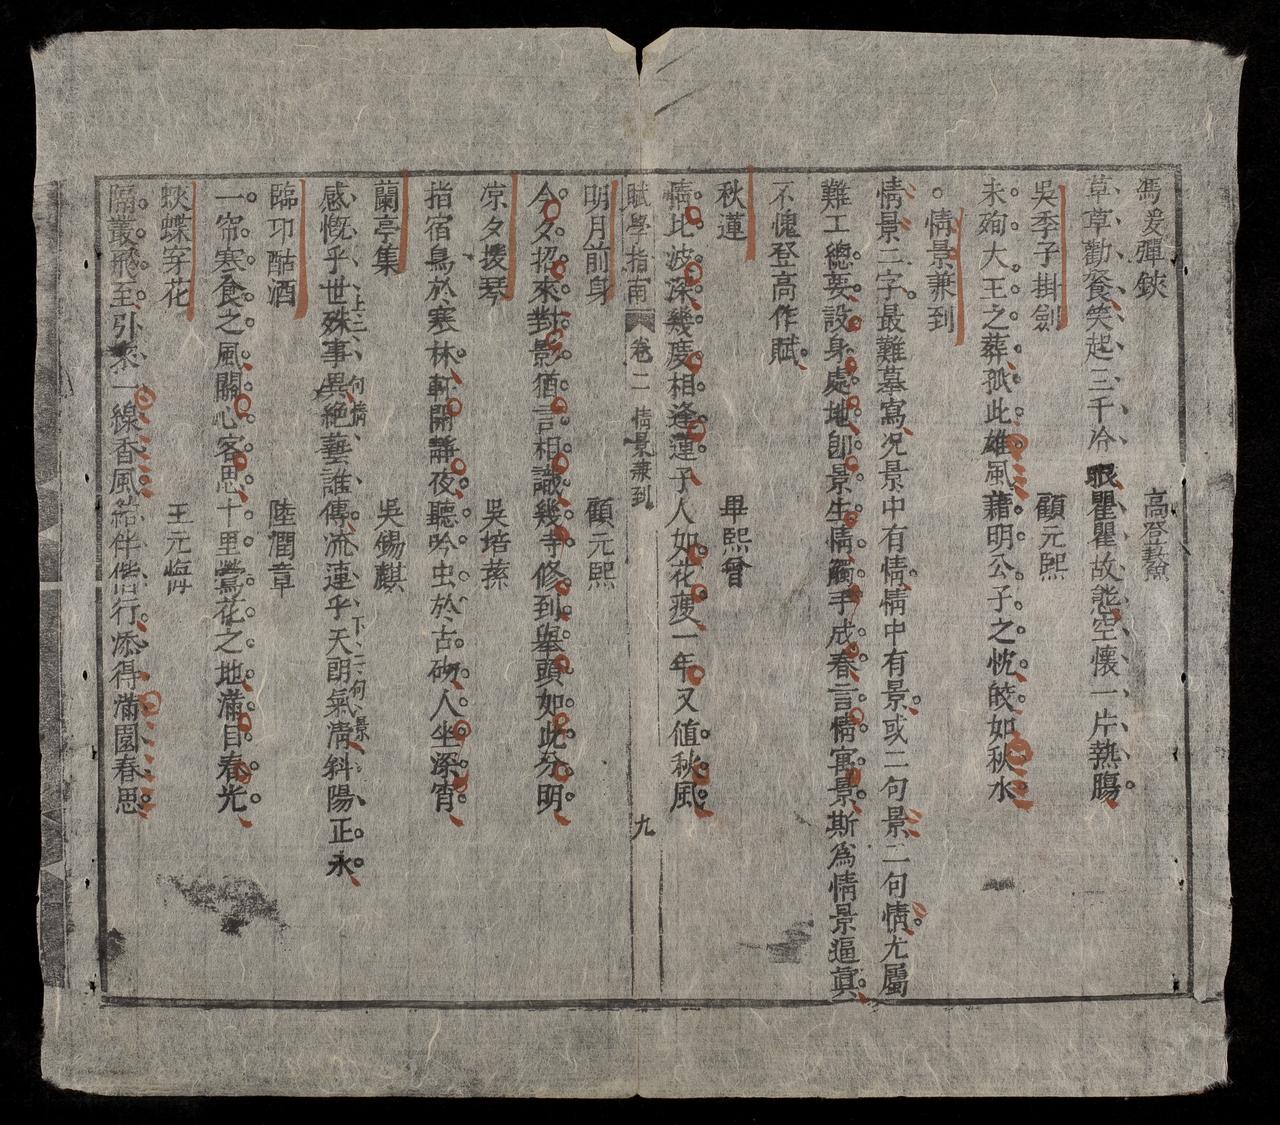 馮爰彈鋏 高登鰲
草草勸餐笑起三千冷眼瞿瞿故態空懷一片熱腸
吳季子掛劍 顧元熙
未殉大王之葬孤此雄風藉明公子之忱皎如秋水
情景兼到
情景二字最難摹寫况景中有情情中有景或二句景二句情尤屬
難工總要設身處地卽景生情觸手成春言情寓景斯爲情景逼眞
不愧登高作賦
秋蓮 畢熙曾
情比波深幾度相逢蓮子人如花瘦一年又值秋風
賦學指南 卷二 情景兼到 九
明月前身 顧元熙
今夕招來對影猶言相識幾寺修到舉頭如此分明
凉夕援琴 吳培蓀
指宿鳥於寒林軒開靜夜聽吟虫於古砌人坐深宵
蘭亭集 吳錫麒
感慨乎世殊事異絶藝誰傳流連乎天朗氣清斜陽正永
上二句情 下二句景
臨邛酤酒 陸潤章
一帘寒食之風關心客思十里鶯花之地滿目春光
蛺蝶穿花 王元梅
隔叢飛至引來一線香風結伴偕行添得滿園春思